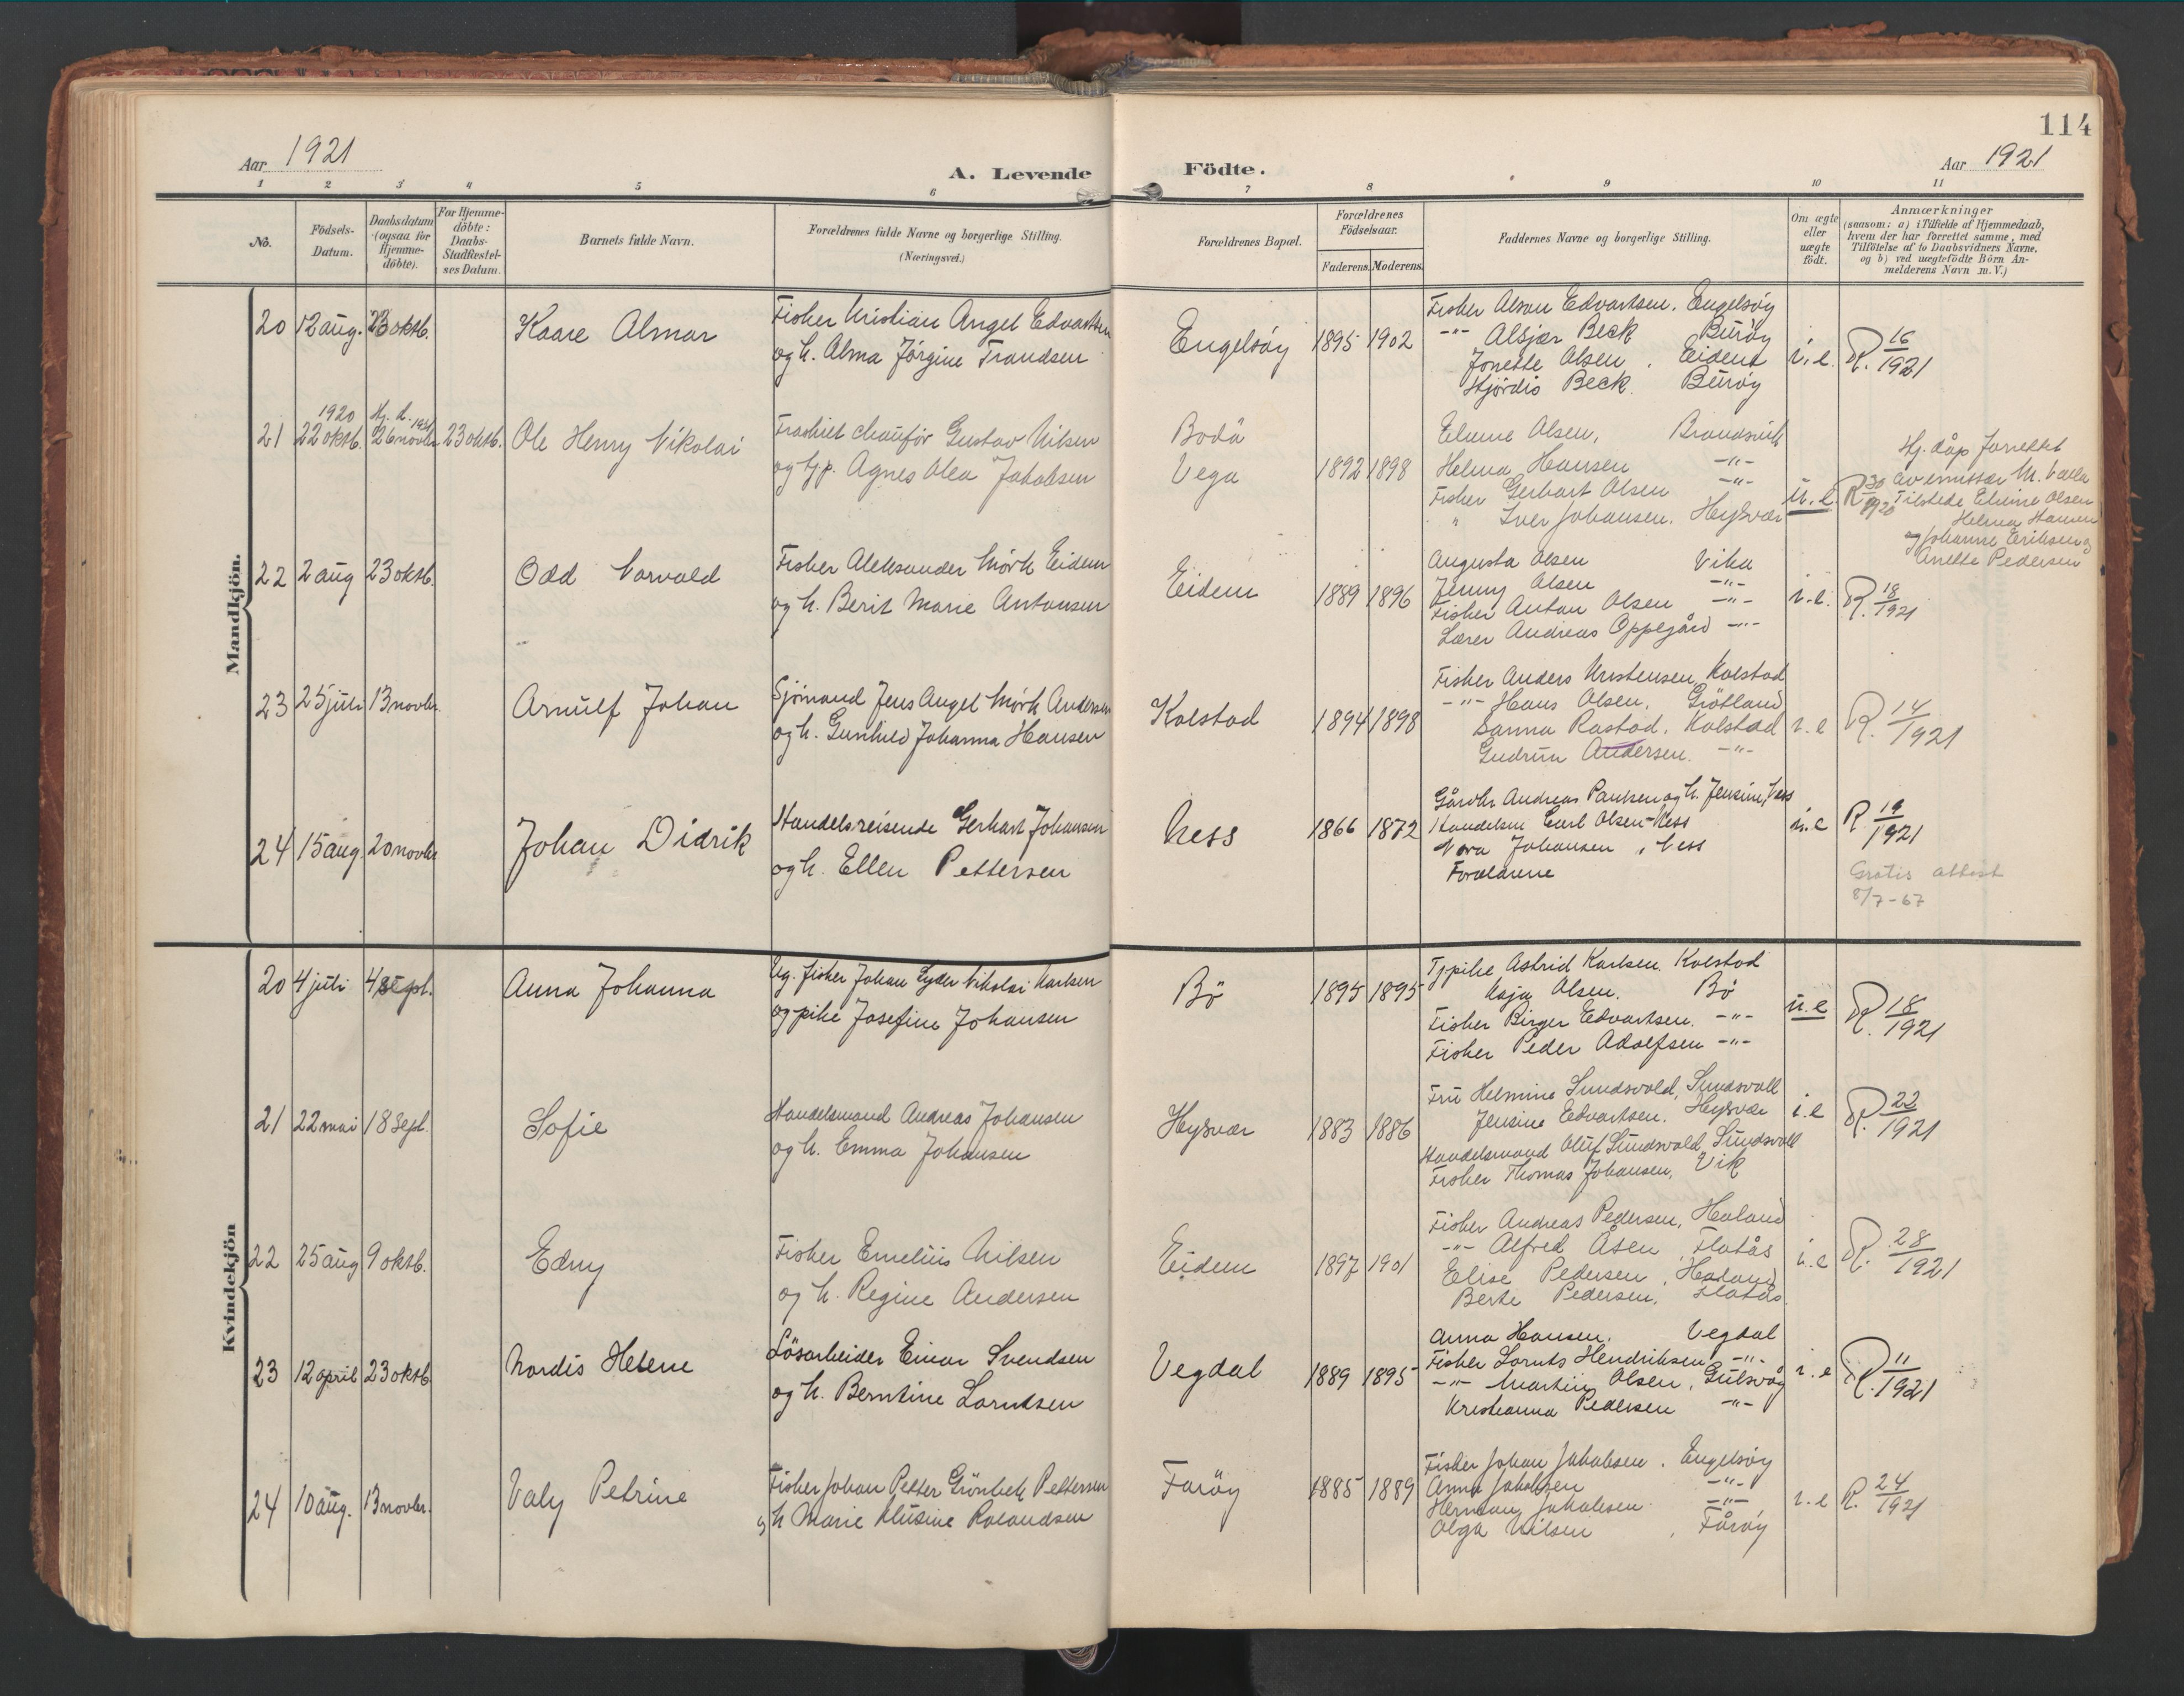 114
Aar 1921
A. Levende Födte.
Aar 1921
1 2 3 4 5 6 7 8 9 10 11
No.
Födsels-Datum.
Daabsdatum (ogsaa for Hjemme-döbte).
For Hjemme-döbte: Daabs-Stadfæstel-ses Datum.
Barnets fulde Navn.
Forældrenes fulde Navne og borgerlige Stilling.
(Næringsvei.)
Forældrenes Bopæl.
Forældrenes Födselsaar.
Faderens. Moderens.
Faddernes Navne og borgerlige Stilling.
Om ægte eller uægte födt.
Anmærkninger
(saasom: a) i Tilfælde af Hjemmedaab,
hvem der har forrettet samme, med
Tilföielse af to Daabsvidners Navne,
og b) ved uægtefödte Börn An-
melderens Navn m. V.)
Mandkjön.
20 12 aug. 23 oktb. Kaare Almar
Fisker Kristian Angel Edvartsen
og h. Alma Jörgine Frandsen
Engelsöy 1895 1902
Fisker Alson Edvartsen. Engelsöy
-"- Alsjær Beck Buröy
Jonette Olsen. Eidem
Hjördis Beck. Buröy
i. e. R. 16/1921
21 1920 22 oktb. Hj. d. 26 novbr 23 oktb. Ole Henry Nikolai
Fraskilt chauför Gustav Nilsen
og tjp. Agnes Alea Jakobsen
Bodö
Vega 1892 1898
Elvine Olsen, Brandsvik
Helma Hansen -"-
Fisker Gerhart Olsen
" Iver Johansen. Hysvær
u. e. R 30/1920
Hj. dåp forrettet
av emissær M. Valla
Tilstede Elvine Olsen
Helma Hansen
og Johanne Eriksen og
Anette Pedersen
22 2 aug 23 oktb. Odd Norvald
Fisker Aleksander Mörk Eidem
og h. Berit Marie Antonsen
Eidem 1889 1896
Augusta Olsen Vika
Jenny Olsen -"-
Fisker Anton Olsen -"-
Lærer Andreas Oppegård -"-
i. e. R. 18/1921
23 25 juli 13 novbr. Arnulf Johan
Sjömand Jens Angel Mörk Andersen
og h. Gunhild Johanna Hansen
Kolstad 1894 1898
Fisker Anders Kristensen, Kolstad
-"- Hans Olsen, Grötland
Sanna Rastad, Kolstad
Gudrun Andersen. -"-
i. e R. 14/1921
24 15 aug. 20 novbr Johan Didrik
Handelsreisende Gerhart Johansen
og h. Ellen Pettersen
Ness 1866 1872
Gårdbr Andreas Paulsen og h. Jensine, Ness
Handelsm Carl Olsen - Ness
Nora Johansen, Ness
Forældrene
i. e R 19/1921
Gratis attest
8/7-67
Kvindekjön
20 4 juli 4 sept. Anna Johanna
Ug. fisker Johan Lyder Nikolai Karlsen
og pike Josefine Johansen
Bö 1895 1895
Tj. pike Astrid Karlsen. Kolstad
Kaja Olsen. Bö
Fisker Birger Edvartsen. -"-
Fisker Peder Adolfsen -"-
u. e R. 18/1921
21 22 mai 18 sept. Sofie
Handelsmand Andreas Johansen
og h. Emma Johansen
Hysvær 1883 1886
Fru Helmine Sundsvold, Sundsvoll
Jensine Edvartsen. Hysvær
Handelsmand Oluf Sundsvold, Sundsvoll
Fisker Thomas Johansen, Vik
i. e R. 22/1921
22 25 aug 9 oktb. Edny
Fisker Emelius Nilsen
og h. Regine Andersen
Eidem 1897 1901
Fisker Andreas Pedersen, Holand
-"- Alfred Åsen, Flatås
Elise Pedersen, Holand
Berte Pedersen, Flatås
i. e R. 28/1921
23 12 april 23 oktb. Nordis Helene
Lösarbeider Einar Svendsen
og h. Berntine Lorntsen
Vegdal 1889 1895
Anna Hansen. Vegdal
Fisker Lornts Hendriksen -"-
-"- Martin Olsen, Gulsvåg
Kristianna Pedersen -"-
i. e R. 11/1921
24 10 aug. 13 novbr. Valy Petrine
Fisker Johan Petter Grönbek Pettersen
og h Marie Klusine Rolandsen
Faröy 1885 1889
Fisker Johan Jakobsen. Engelsöy
Anna Jakobsen -"-
Hermann Jakobsen -"-
Olga Nilsen, Fåröy
i. e R. 24/1921